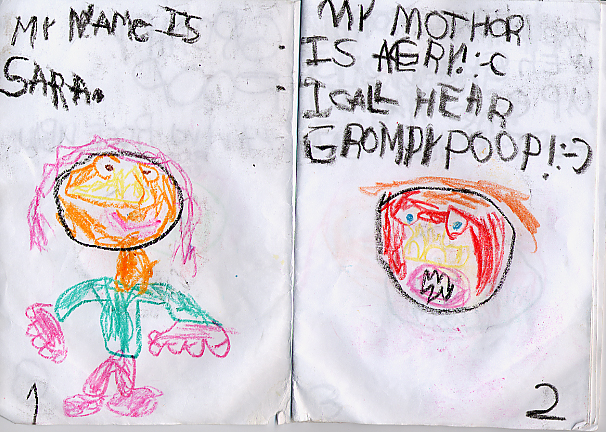 MY NAMC IS
SARA.
1
MY MOTHOR
IS AGERY! :-C
I CALL HEAR
GROMPY POOP! :-)
2